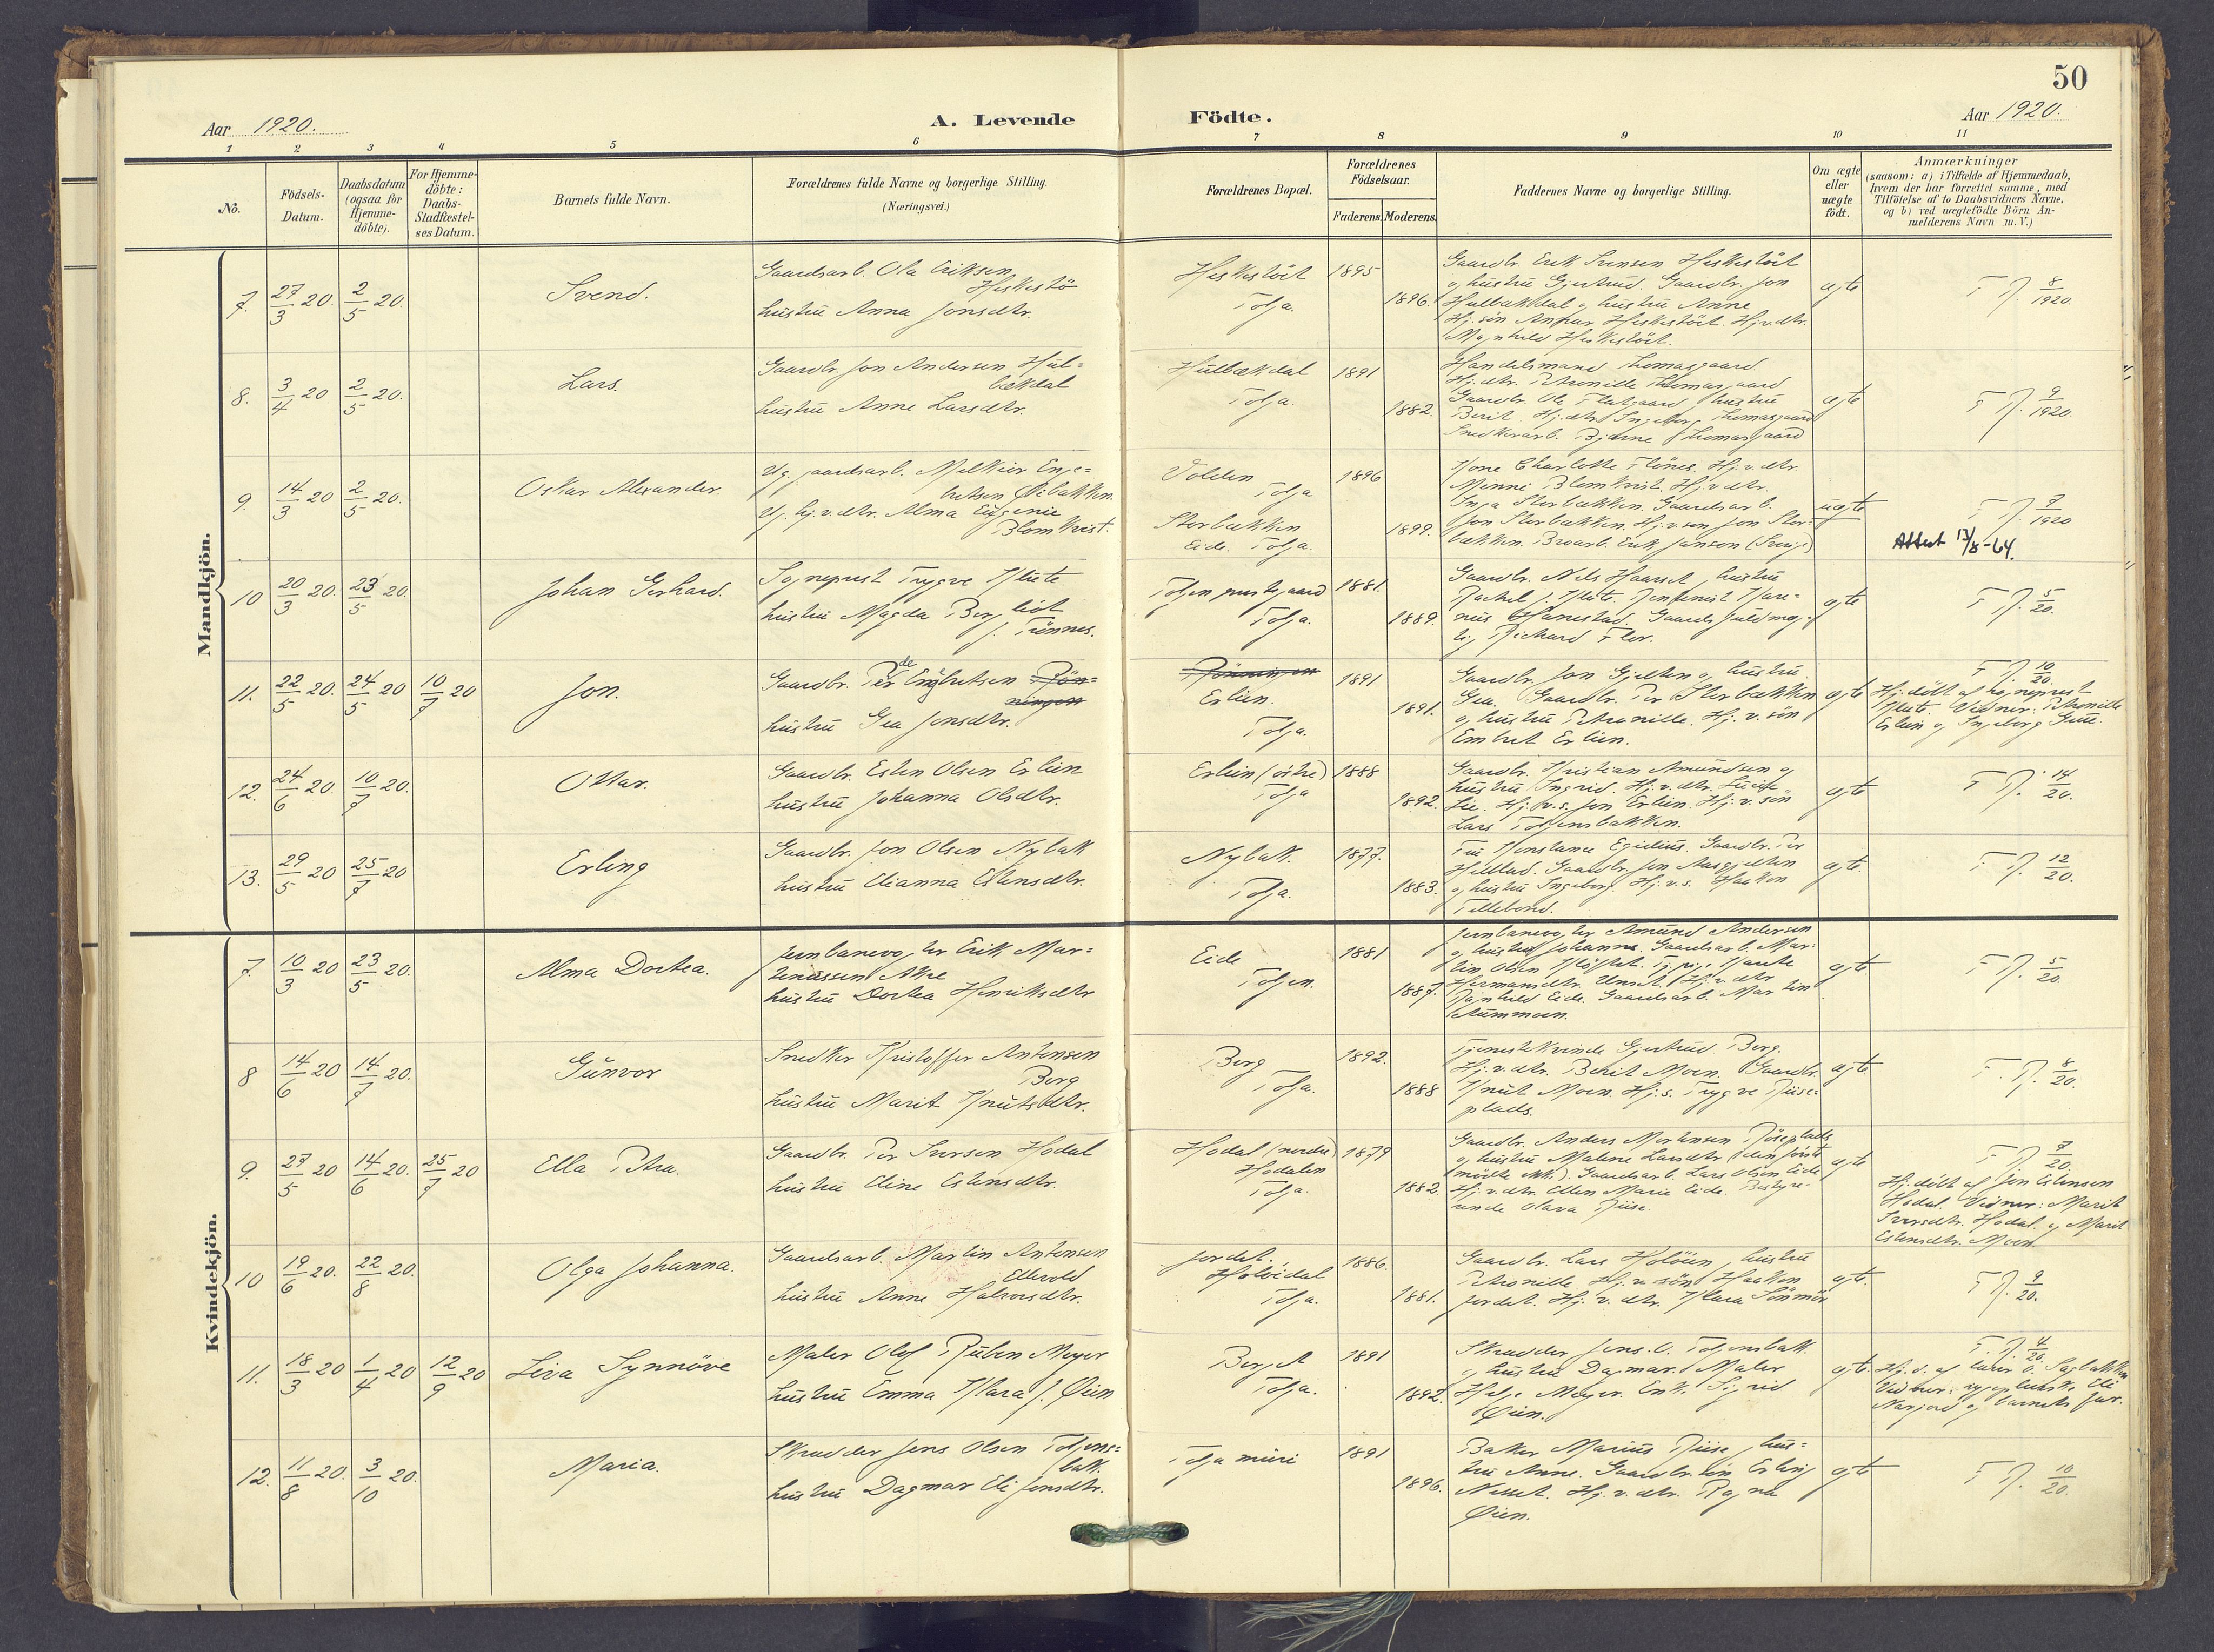 50
Aar 1920.
A. Levende
Födte.
Aar 1920.
1 2 3 4 5 6 7 8 9 10 11
No.
Födsels-
Datum.
Daabsdatum
(ogsaa for
Hjemme-
döbte).
For Hjemme-
döbte:
Daabs-
Stadfæstel-
ses Datum.
Barnets fulde Navn.
Forældrenes fulde Navne og borgerlige Stilling.
(Næringsvei.)
Forældrenes Bopæl.
Forældrenes
Födselsaar.
Faderens. Moderens.
Faddernes Navne og borgerlige Stilling.
Om ægte
eller
uægte
födt.
Anmærkninger
(saasom: a) i Tilfælde af Hjemmedaab,
hvem der har forrettet samme, med
Tilföielse af to Daabsvidners Navne.
og b) ved uægtefödte Börn An-
melderens Navn m. V.)
Mandkjön.
7. 27/3 20. 2/5 20.
Svend.
Gaardsarb. Ola Eriksen
Heskestö
hustru Anna Jonsdtr.
Heskestöit
Tolga.
1895
1896.
Gaardbr. Erik Svensen Heskestöit
og hustru Gjertrud. Gaardbr. Jon
Hulbækdal og hustru Anne
Magnhild Heskestöit.
ægte
F R. 8/1920.
8. 3/4 20 2/5 20.
Lars.
Gaardbr. Jon Andersen Hul-
bækdal
hustru Anne Larsdtr.
Hulbækdal
Tolga.
1891
1882.
Handelsmand Thomasgaard
Hj.dtr. Petronille Thomasgaard
Gaardbr. Ole Flatgaard hustru
Berit. Hj.dtr. Ingeborg Thomasgaard
Snedkerarb. Bjarne Thomasgaard
ægte
F R. 9/1920.
9. 14/3 20 2/5 20.
Oskar Alexander.
Ug. gaardsarb. Melkior Enge-
bretsen Öibakken.
Ug. hj.v.dtr. Alma Eugenie
Blomkvist.
Volden
Tolga
Storbækken
Eide. Tolga.
1896
1899.
Kone Charlotte Flönes. Hj.v.dtr.
Minni Blomkvist. Hj.v.dtr.
Inga Storbækken. Gaardsarb.
Jon Storbækken. Hj.v.søn Jon Stor-
bækken. Broarb. Erik Janson (Sverige)
uægte
F R. 7/1920
Attest 13/8-64.
10 20/3 20. 23/5 20.
Johan Gerhard.
Sogneprest Trygve Klute
hustru Magda Bergliot
f. Tönnes.
Tolgen prestgaard
Tolga.
1881.
1889.
Gaardbr. Nils Haarset, hustru
Rachel f. Klute.
Richard Flor.
ægte
F R. 5/20.
11. 22/5 20. 24/5 20 10/7 20
Jon.
Gaardbr. Peder Engbretsen Rön-
ningen
hustru Gea Jonsdtr.
Rönningen
Erlien.
Tolga.
1891
1891.
Gaardbr. Jon Gjelten og hustru
Gea. Gaardbr. Per Storbækken
og hustru Petronille. Hj. v. sön
Embret Erlien.
ægte
F R. 10/20.
Hj.döbt af sogneprest
Klute. Vidner: Petronille
Erlien og Ingeborg Grue.
12. 24/6 20. 10/7 20.
Ottar.
Gaardbr. Esten Olsen Erlien
hustru Johanna Olsdtr.
Erlien (östre)
Tolga
1888
1892.
Gaardbr. Kristian Amundsen og
hustru Ingrid. Hj.v.dtr. Lucie
Lie. Hj.v.s. Jon Erlien. Hj.v. sön
Lars Tolgensbakken.
ægte
F R. 14/20.
13. 29/5 20 25/7 20
Erling
Gaardbr. Jon Olsen Nybak
hustru Elianna Estensdtr.
Nybak.
Tolga.
1877.
1883.
Fru Konstance Egidius. Gaardbr. Per
og hustru Ingeborg. Hj.v.s. Haakon
Tellebond.
ægte.
F R. 12/20.
Kvindekjön.
7. 10/3 20 23/5 20.
Alma Dortea.
Jernbanevogter Erik Mar-
tinussen Ake
hustru Dortea Henriksdtr
Eide
Tolgen.
1881
1887.
Jernbanevogter Amund Andersen
og hustru Johanne. Gaardsarb. Mar-
tin Olsen Klöftet. Tj.pige Marite
Hermansdtr. Unset. Hj.v.dtr
Ragnhild Eide. Gaardsarb. Martin
Aummoen.
ægte
F R. 5/20.
8 14/6 20 14/7 20.
Gunvor
Snedker Kristoffer Antonsen
Berg
hustru Marit Knutsdtr.
Berg
Tolga.
1892.
1888
Tjenestekvinde Gjertrud Berg.
Hj.v.dtr. Berit Moen. Gaardbr.
Knut Moen. Hj.s. Trygve Riise-
plads.
ægte
F. R. 8/20.
9. 27/5 20 14/6 20. 25/7 20
Ella Petra.
Gaardbr. Per Iversen Hodal
hustru Eline Estensdtr.
Hodal (nordre)
Hodalen
Tolga.
1879
1882.
Gaardbr. Anders Mortensen Röseplads
og hustru Malene Larsdtr. (den förste
mödte ikke). Gaardsarb. Lars Olsen Eide
Hj.v.dtr. Ellen Marie Eide. Bestyre-
rinde Olava Riise.
ægte
F R. 7/20.
Hj.döbt af Jon Estensen
Hodal. Vidner: Marit
Iversdtr. Hodal og Marit
Estensdtr. Moen.
10 19/6 20. 22/8 20.
Olga Johanna.
Gaardsarb. Martin Antonsen
Ellevold
hustru Anne Halvorsdtr.
Jordet.
Holöidal
Tolga.
1886.
1881.
Gaardbr. Lars Holöien, hustru
Petronille Hj.v. sön Haakon
Jordet. Hj. v. dtr. Klara Sönmör
ægte.
F R. 9/20.
11. 18/3 20 1/4 20 12/9 20
Liva Synnöve
Maler Olof Ruben Meyer
hustru Emma Klara f. Øien
Berget
Tolga.
1891
1892.
Skrædder Jens O. Tolgensbak.
og hustru Dagmar. Maler
Helge Meyer. Enk. Sigrid
Øien.
ægte.
F. R. 4/20.
Hj.d. af lærer O. Sagbakken
Vidner: sygepleierske Eli
Narjord og barnets far.
12. 11/8 20. 3/10 20.
Maria.
Skrædder Jens Olsen Tolgens-
bak.
hustru Dagmar Eli Jensdtr.
Tolga muri
1891
1896.
Baker Marius Riise, hus-
tru Anne. Gaardbr. sön Erling
Nesset. Hj.v.dtr. Ragna
Øien.
ægte
F R. 10/20.